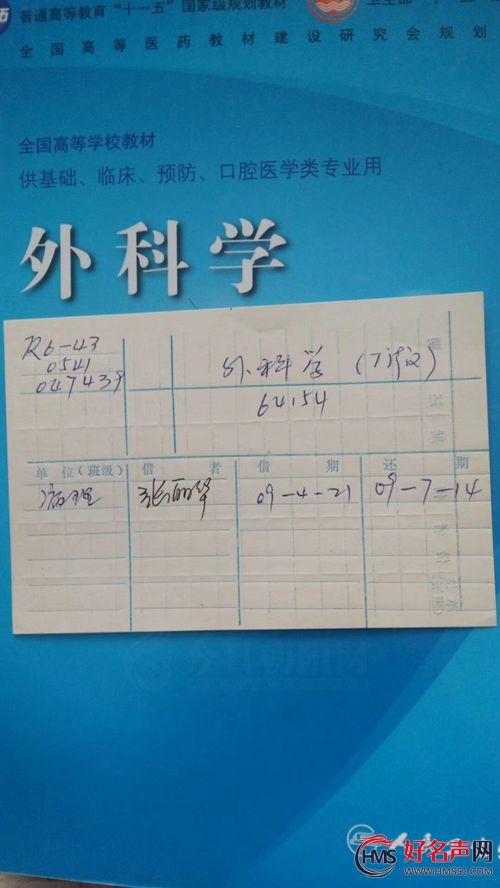 普通高等教育“十一五”国家级规划教材
全国高等医药教材建设研究会规划
全国高等学校教材
供基础、临床、预防、口腔医学类专业用
外科学
R6-43
0541
047439
外科学
64154
单位(班级) 借者 借期 还期
病理 张丽华 09-4-21 09-7-14
HMS
好名声网
WWW.HMS51.COM